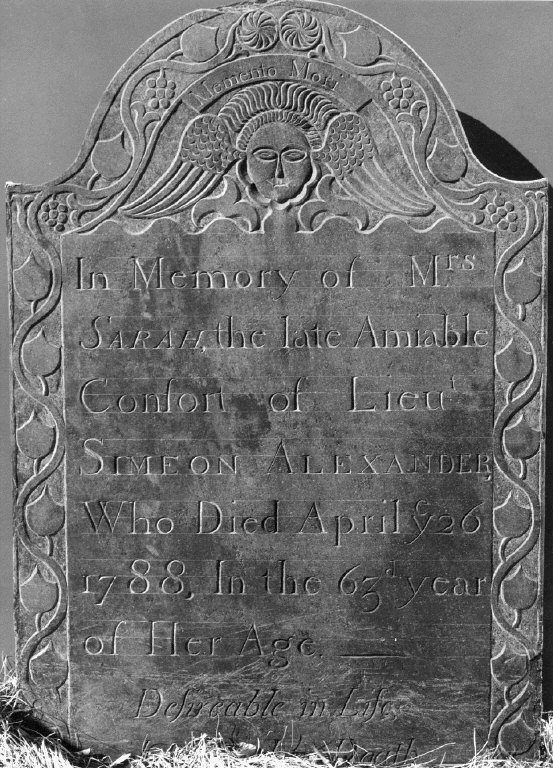 Memento Mori
In Memory of Mrs
SARAH, the late Amiable
Conſort of Lieut
SIMEON ALEXANDER,
Who Died April ye 26
1788, In the 63d year
of Her Age.
Deſireable in Life,
Death